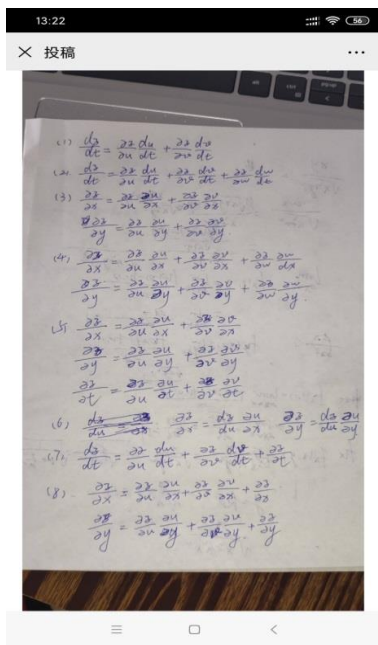 13:22
56
投稿
(1) dz/dt = ∂z/∂u du/dt + ∂z/∂v dv/dt
(2) dz/dt = ∂z/∂u du/dt + ∂z/∂v dv/dt + ∂z/∂w dw/dt
(3) ∂z/∂x = ∂z/∂u ∂u/∂x + ∂z/∂v ∂v/∂x
∂z/∂y = ∂z/∂u ∂u/∂y + ∂z/∂v ∂v/∂y
(4) ∂z/∂x = ∂z/∂u ∂u/∂x + ∂z/∂v ∂v/∂x + ∂z/∂w ∂w/dx
∂z/∂y = ∂z/∂u ∂u/∂y + ∂z/∂v ∂v/∂y + ∂z/∂w ∂w/∂y
(5) ∂z/∂x = ∂z/∂u ∂u/∂x + ∂z/∂v ∂v/∂x
∂z/∂y = ∂z/∂u ∂u/∂y + ∂z/∂v ∂v/∂y
∂z/∂t = ∂z/∂u ∂u/∂t + ∂z/∂v ∂v/∂t
(6) ∂z/∂x = dz/du ∂u/∂x ∂z/∂y = dz/du ∂u/∂y
(7) dz/dt = ∂z/∂u du/dt + ∂z/∂v dv/dt + ∂z/∂t
(8) ∂z/∂x = ∂z/∂u ∂u/∂x + ∂z/∂v ∂v/∂x + ∂z/∂x
∂z/∂y = ∂z/∂u ∂u/∂y + ∂z/∂v ∂v/∂y + ∂z/∂y